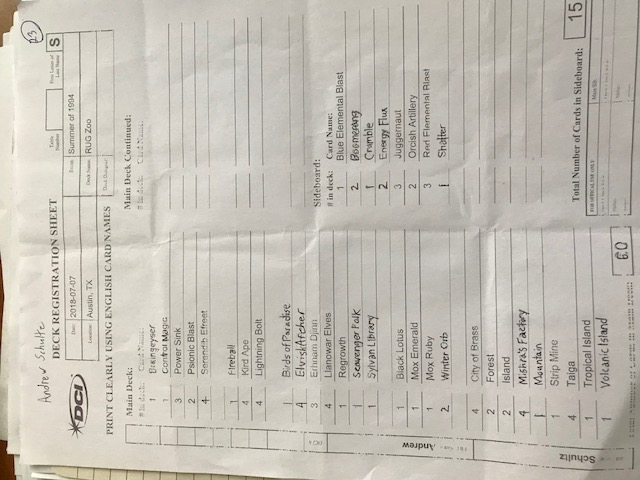 23
Andrew Schultz
DECK REGISTRATION SHEET
Table Number
First Letter of Last Name
S
DCI
Date: 2018-07-07
Event: Summer of 1994
Location: Austin, TX
Deck Name: RUG Zoo
Deck Designer:
PRINT CLEARLY USING ENGLISH CARD NAMES
Main Deck:
# in deck: Card Name:
1 Braingeyser
1 Control Magic
3 Power Sink
2 Psionic Blast
4 Serendib Efreet
1 Fireball
4 Kird Ape
4 Lightning Bolt
1 Birds of Paradise
4 Elvish Archer
3 Erhnam Djinn
4 Llanowar Elves
1 Regrowth
1 Scavenger Folk
1 Sylvan Library
1 Black Lotus
1 Mox Emerald
1 Mox Ruby
2 Winter Orb
4 City of Brass
2 Forest
2 Island
4 Mishra's Factory
1 Mountain
1 Strip Mine
4 Taiga
1 Tropical Island
1 Volcanic Island
60
Main Deck Continued:
# in deck: Card Name:
Sideboard:
# in deck: Card Name:
1 Blue Elemental Blast
2 Boomerang
1 Crumble
2 Energy Flux
3 Juggernaut
2 Orcish Artillery
3 Red Elemental Blast
1 Shatter
Total Number of Cards in Sideboard: 15
FOR OFFICIAL USE ONLY
Main/SB
Andrew
Schultz